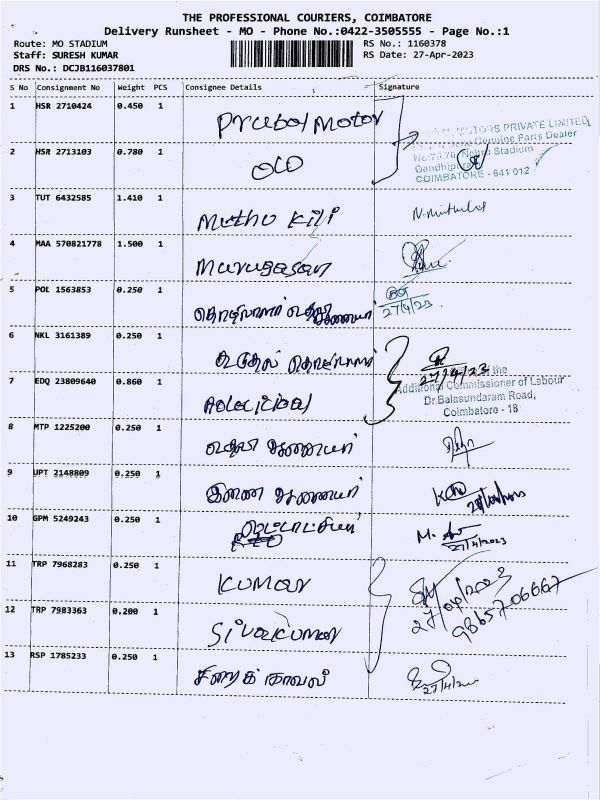 THE PROFESSIONAL COURIERS, COIMBATORE
Delivery Runsheet - MO - Phone No.:0422-3505555 - Page No.:1
Route: MO STADIUM
RS No.: 1160378
Staff: SURESH KUMAR
RS Date: 27-Apr-2023
DRS No.: DCJB116037801
S No Consignment No Weight PCS Consignee Details Signature
1 HSR 2710424 0.450 1 Motor
MOTORS PRIVATE LIMITED
Genuine Parts Dealer
2 HSR 2713103 0.780 1
Nehru Stadium
Gandhipuram
COIMBATORE - 641 012
3 TUT 6432585 1.410 1 Muthu Kili
4 MAA 570821778 1.500 1 Murugasan
5 POL 1563853 0.250 1 தொழிலாளர் உதவி ஆணையர்
27/4/23
6 NKL 3161389 0.250 1 கூடுதல் தொழிலாளர்
27/4/23
the
7 EDQ 23809640 0.860 1
Additional Commissioner of Labour
Dr.Balasundaram Road,
Coimbatore - 18
8 MTP 1225200 0.250 1 உதவி ஆணையர்
9 UPT 2148809 0.250 1 இணை ஆணையர்
10 GPM 5249243 0.250 1
27/4/2023
11 TRP 7968283 0.250 1 Kumar
12 TRP 7983363 0.200 1 Sivakumar
9865706667
13 RSP 1785233 0.250 1 சிறைக் காவலர்
27/4/2